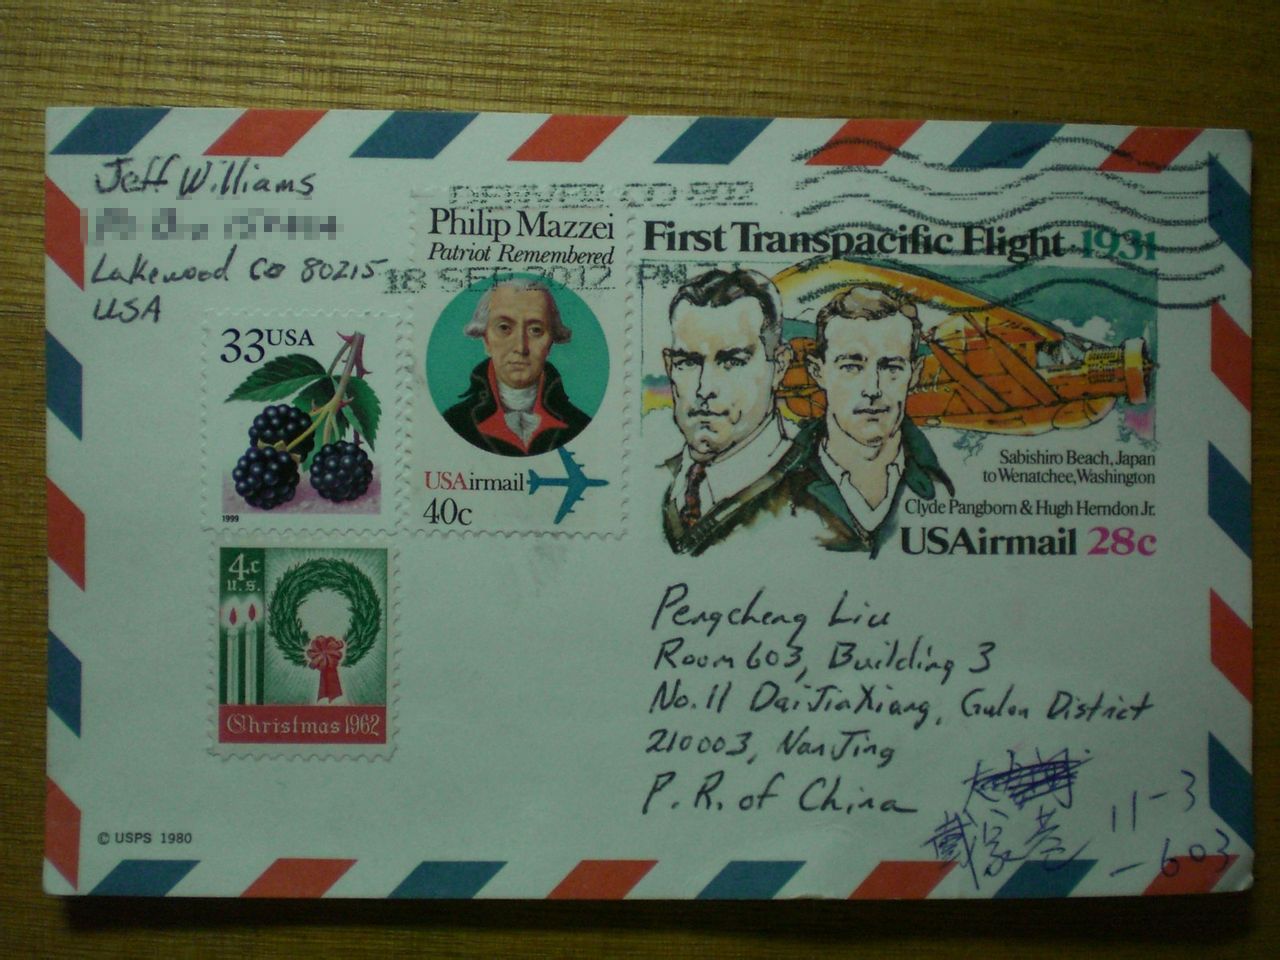 Jeff Williams
Lakewood CO 80215
USA
DENVER CO 802
18 SEP 2012 PM
Philip Mazzei
Patriot Remembered
USAirmail
40c
First Transpacific Flight 1931
Sabishiro Beach, Japan
to Wenatchee, Washington
Clyde Pangborn & Hugh Herndon Jr.
USAirmail 28c
33USA
1999
4c
U.S.
Christmas 1962
Pengcheng Liu
Room 603, Building 3
No.11 DaiJiaXiang, Gulou District
210003, NanJing
P.R. of China
戴家巷 11-3
-603
© USPS 1980